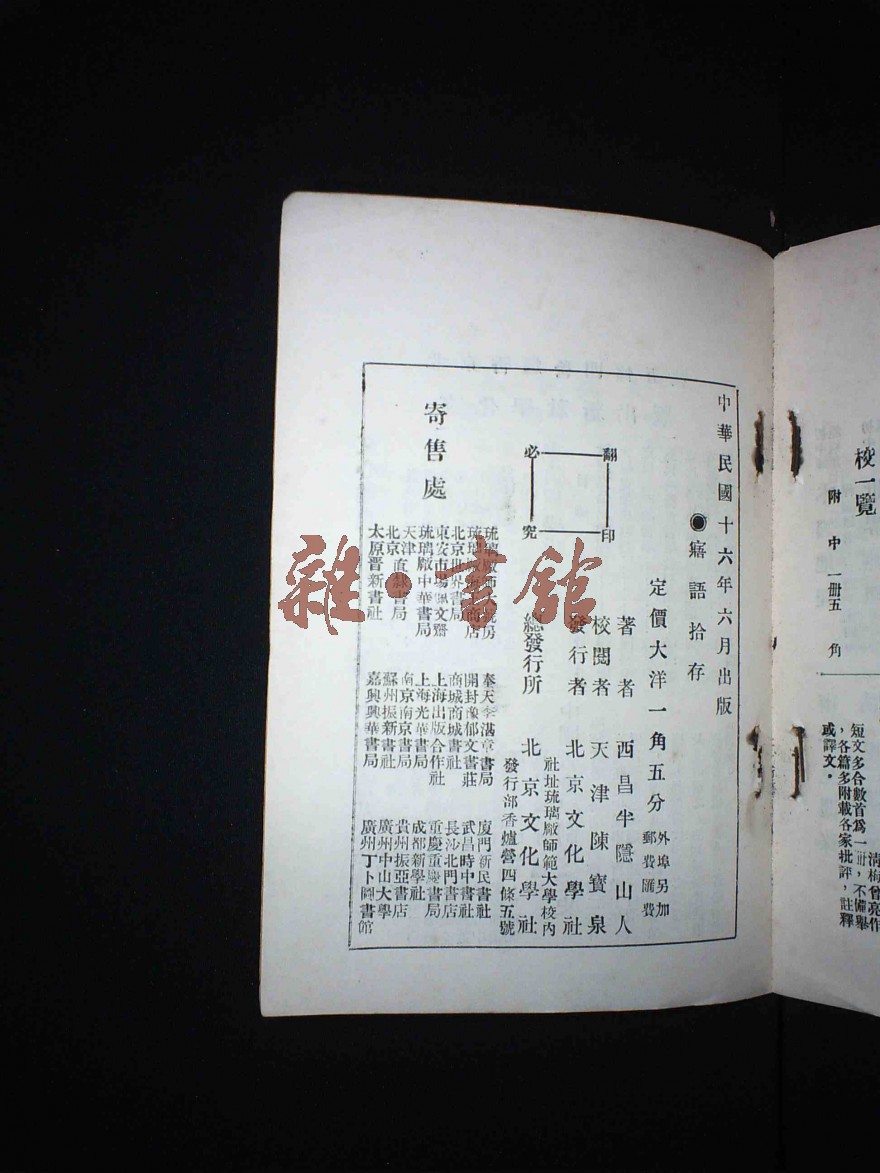 校一覽
附中一冊五角
清梅曾亮作
短文多合數首爲一冊，不備舉
，各篇多附載各家批評，註釋
或譯文。
中華民國十六年六月出版
◉寤語拾存
定價大洋一角五分
外埠另加
郵費匯費
著者 西昌半隱山人
校閱者 天津陳寶泉
發行者 北京文化學社
社址琉璃廠師範大學校內
總發行所 北京文化學社
發行部香爐營四條五號
翻印必究
寄售處
北京世界書局
琉璃廠中華書局
天津直隸書局
太原晋新書社
奉天李湛章書局
開封豫郁文書莊
商城商城書社
上海出版合作社
上海光華書局
南京南京書局
蘇州振新書社
嘉興興華書局
廈門新民書社
武昌時中書社
長沙北門書店
重慶重慶書局
成都新學社
貴州振亞書店
廣州中山大學
廣州丁卜圖書館
雜·書館